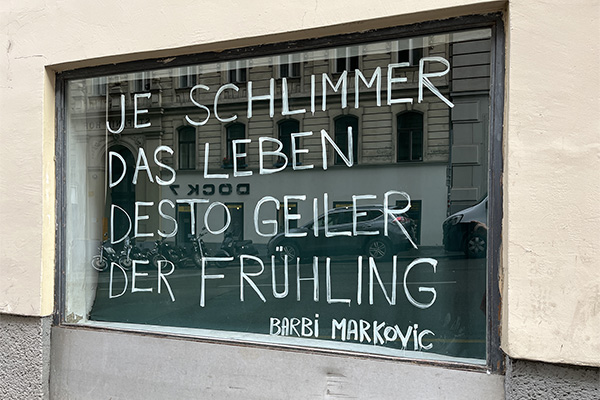 JE SCHLIMMER
DAS LEBEN
DOCK 7
DESTO GEILER
DER FRÜHLING
BARBI MARKOVIC